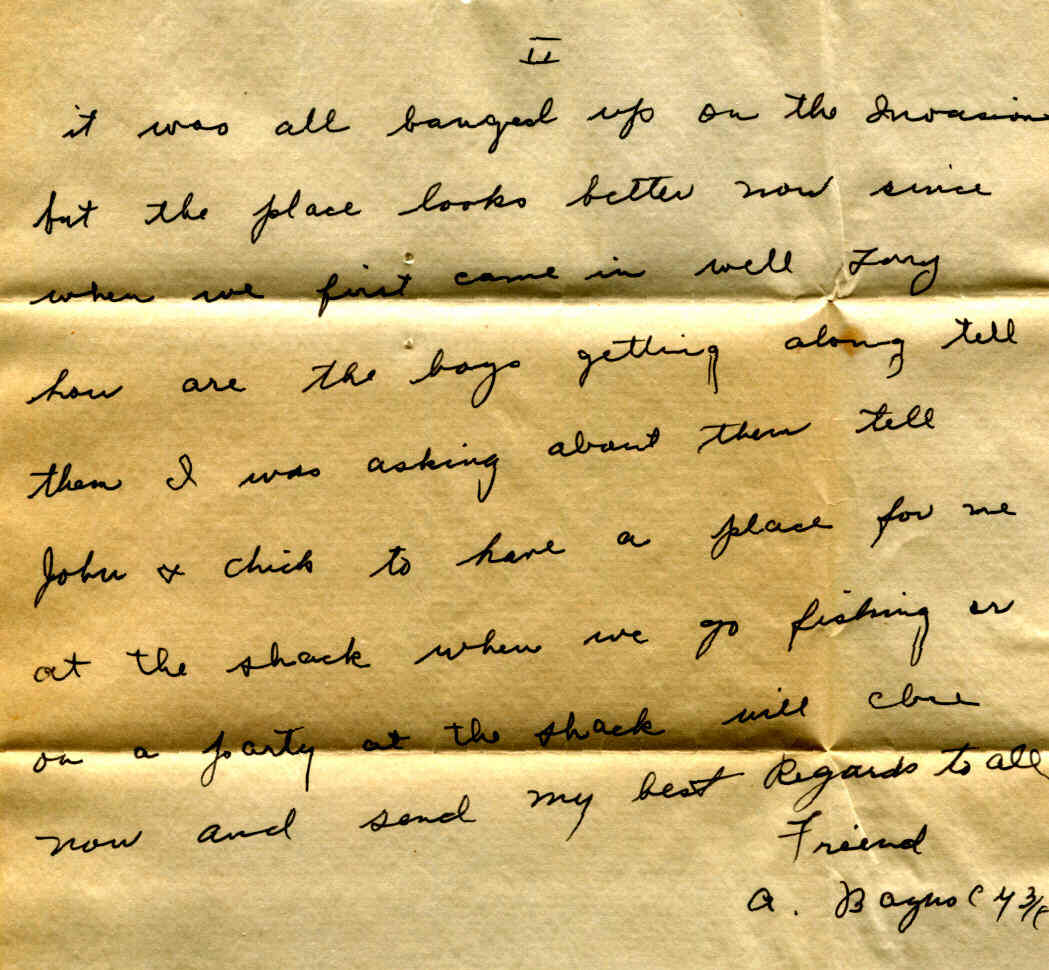 II
it was all banged up on the Invasion
but the place looks better now since
when we first came in well
how are the boys getting along tell
them I was asking about them tell
John & Chick to have a place for me
at the shack when we go fishing or
on a party at the shack will close
now and send my best Regards to all
Friend
A.